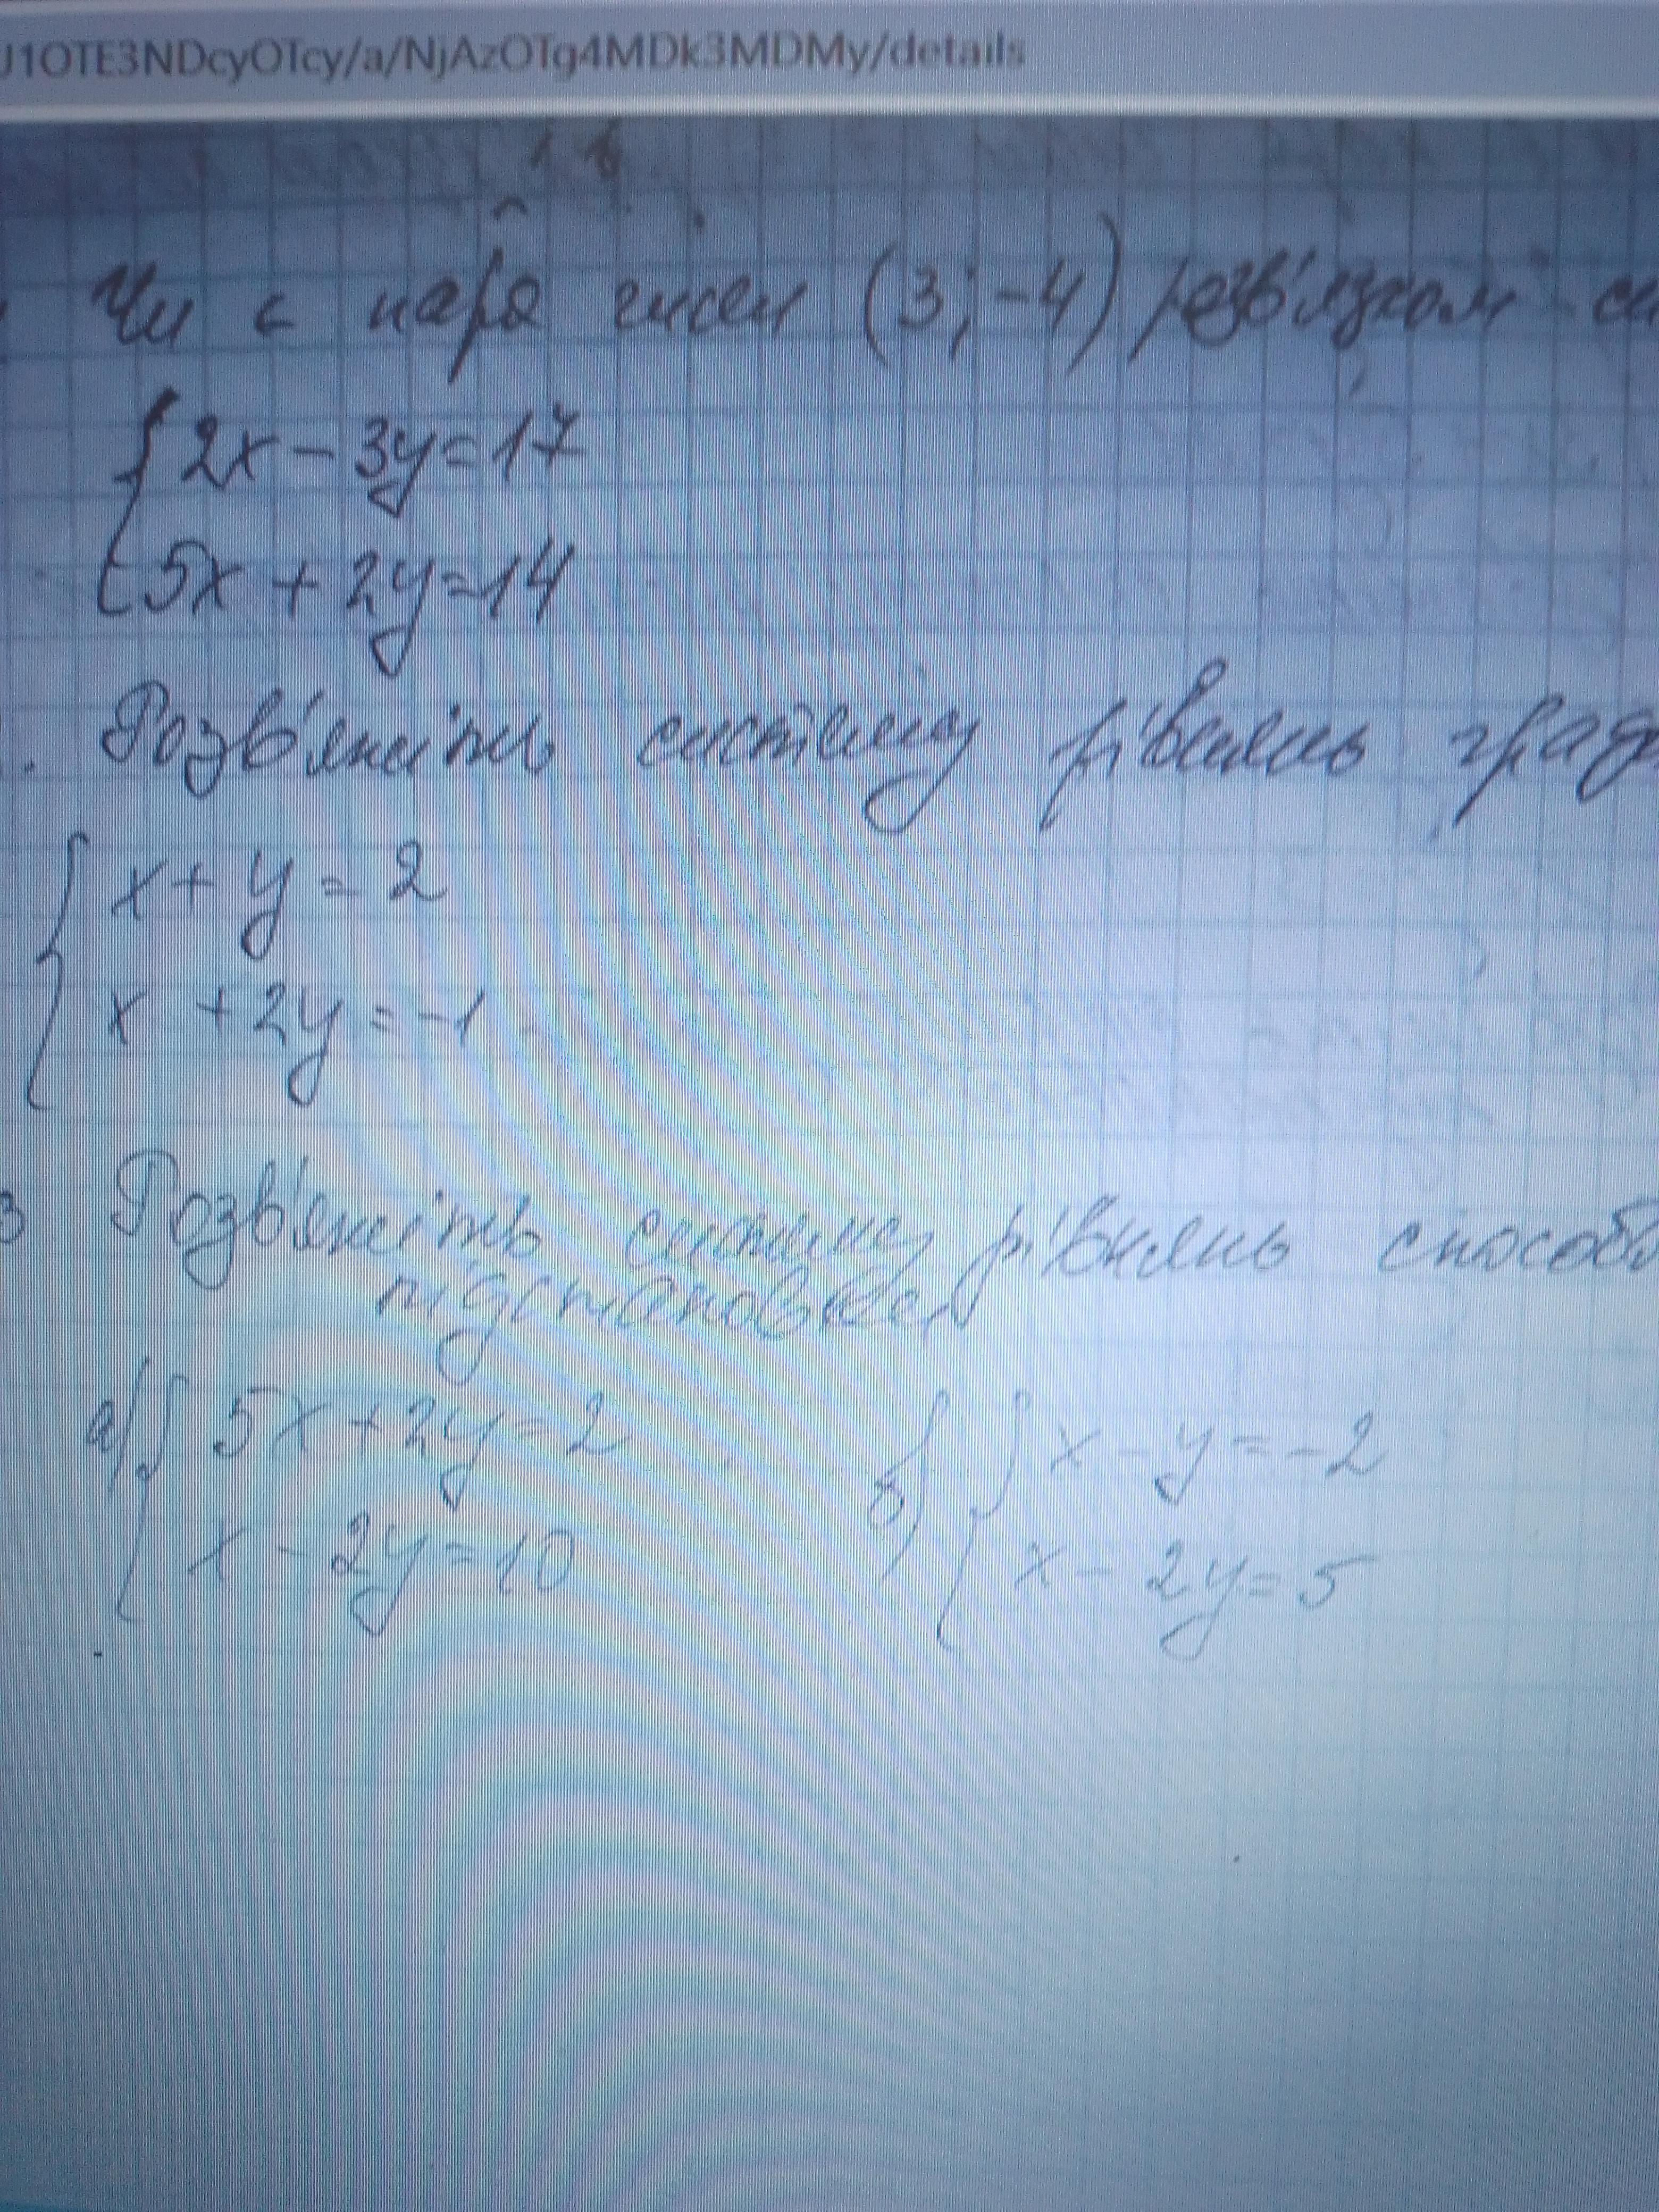 J1OTE3NDcyOTcy/a/NjAzOTg4MDk3MDMy/details
Чи є пара чисел (3; -4) розв'язком си
2x - 3y = 17
5x + 2y = 14
. Розв'яжіть систему рівнянь граф
x + y = 2
x + 2y = -1
3 Розв'яжіть систему рівнянь способо
підстановки
а) 5x + 2y = 2 б) x - y = -2
x - 2y = 10 x - 2y = 5